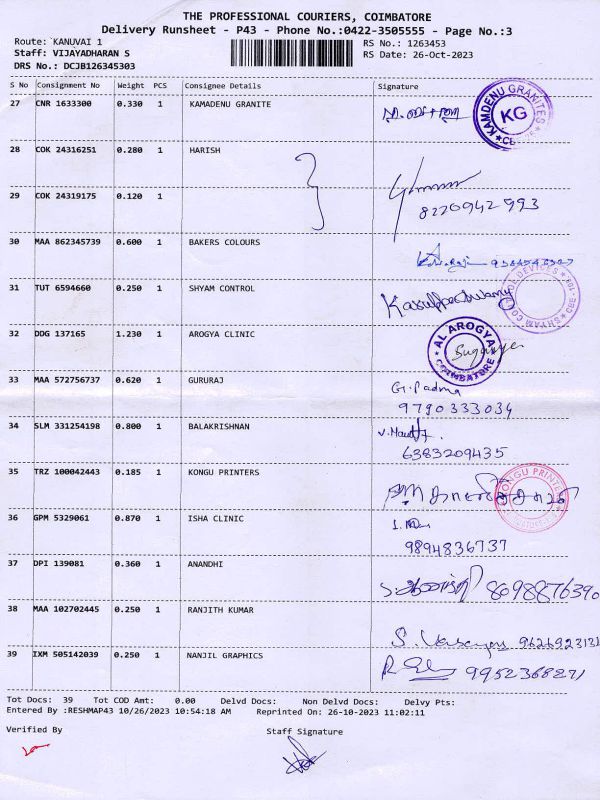 THE PROFESSIONAL COURIERS, COIMBATORE
Delivery Runsheet - P43 - Phone No.:0422-3505555 - Page No.:3
Route: KANUVAI 1
RS No.: 1263453
Staff: VIJAYADHARAN S
RS Date: 26-Oct-2023
DRS No.: DCJB126345303
S No Consignment No Weight PCS Consignee Details Signature
27 CNR 1633300 0.330 1 KAMADENU GRANITE
KAMDENU GRANITES
KG
28 COK 24316251 0.280 1 HARISH
29 COK 24319175 0.120 1
8220942993
30 MAA 862345739 0.600 1 BAKERS COLOURS
31 TUT 6594660 0.250 1 SHYAM CONTROL
32 DDG 137165 1.230 1 AROGYA CLINIC
AL AROGYA
COIMBATORE
33 MAA 572756737 0.620 1 GURURAJ
G. Padma
9790333034
34 SLM 331254198 0.800 1 BALAKRISHNAN
6383209435
35 TRZ 100042443 0.185 1 KONGU PRINTERS
KONGU PRINTERS
36 GPM 5329061 0.870 1 ISHA CLINIC
9894836737
37 DPI 139081 0.360 1 ANANDHI
8698876390
38 MAA 102702445 0.250 1 RANJITH KUMAR
39 IXM 505142039 0.250 1 NANJIL GRAPHICS
9952368271
Tot Docs: 39 Tot COD Amt: 0.00 Delvd Docs: Non Delvd Docs: Delvy Pts:
Entered By :RESHMAP43 10/26/2023 10:54:18 AM Reprinted On: 26-10-2023 11:02:11
Verified By
Staff Signature